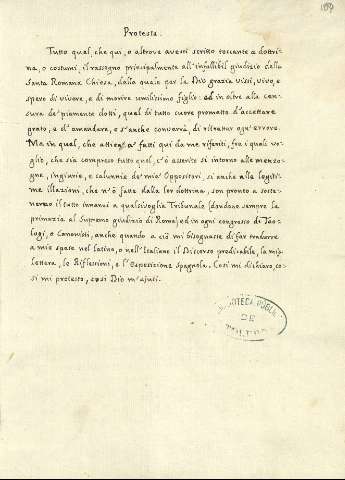 Protesta.
Tutto quel, che qui, o altrove avessi scritto toccante a dottri-
na, o costumi, il rassegno principalmente all'infallibil giudizio della
Santa Romana Chiesa, dalla quale per la Dio grazia vissi, vivo, e
spero di vivere, e di morire umilissimo figlio: ed in oltre alla cen-
sura de' piamente dotti, quel di tutto cuore prometto d'accettare
grato, e d'amendare, e s'anche converrà, di ritrattar ogn'errore.
Ma in quel, che attiene a' fatti qui da me riferiti, fra i quali vo-
glio, che sia compreso tutto quel, c'ò asserito sì intorno alle menzo-
gne, ingiurie, e calunnie de' miei Oppositori, sì anche alla legitti-
me illazioni, che n'ò fatte dalla lor dottrina, son pronto a soste-
nerero il tutto innanzi a qualsivoglia Tribunale (dandone sempre la
primazia al Supremo giudizio di Roma) ed in ogni congresso di Teo-
logi, o Canonisti, anche quando a ciò mi bisognasse di far tradurre
a mie spese nel latino, o nell'Italiano il Discorso predicabile, la mia
lettera, le Riflessioni, e l'Esposizione Spagnola. Così mi dichiaro, co-
sì mi protesto, così Dio m'ajuti.
BIBLIOTECA PUBLICA
DE